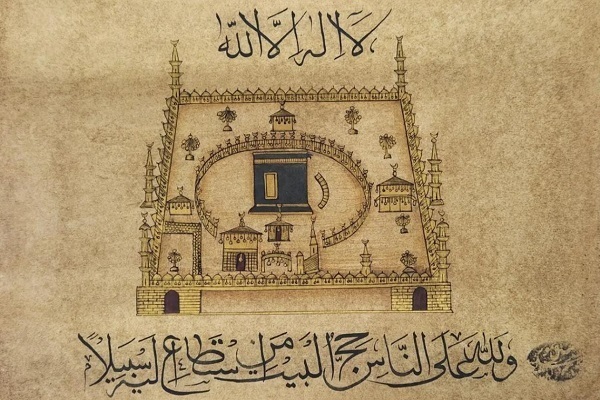 لا اله الا الله
ولله على الناس حج البيت من استطاع اليه سبيلاً